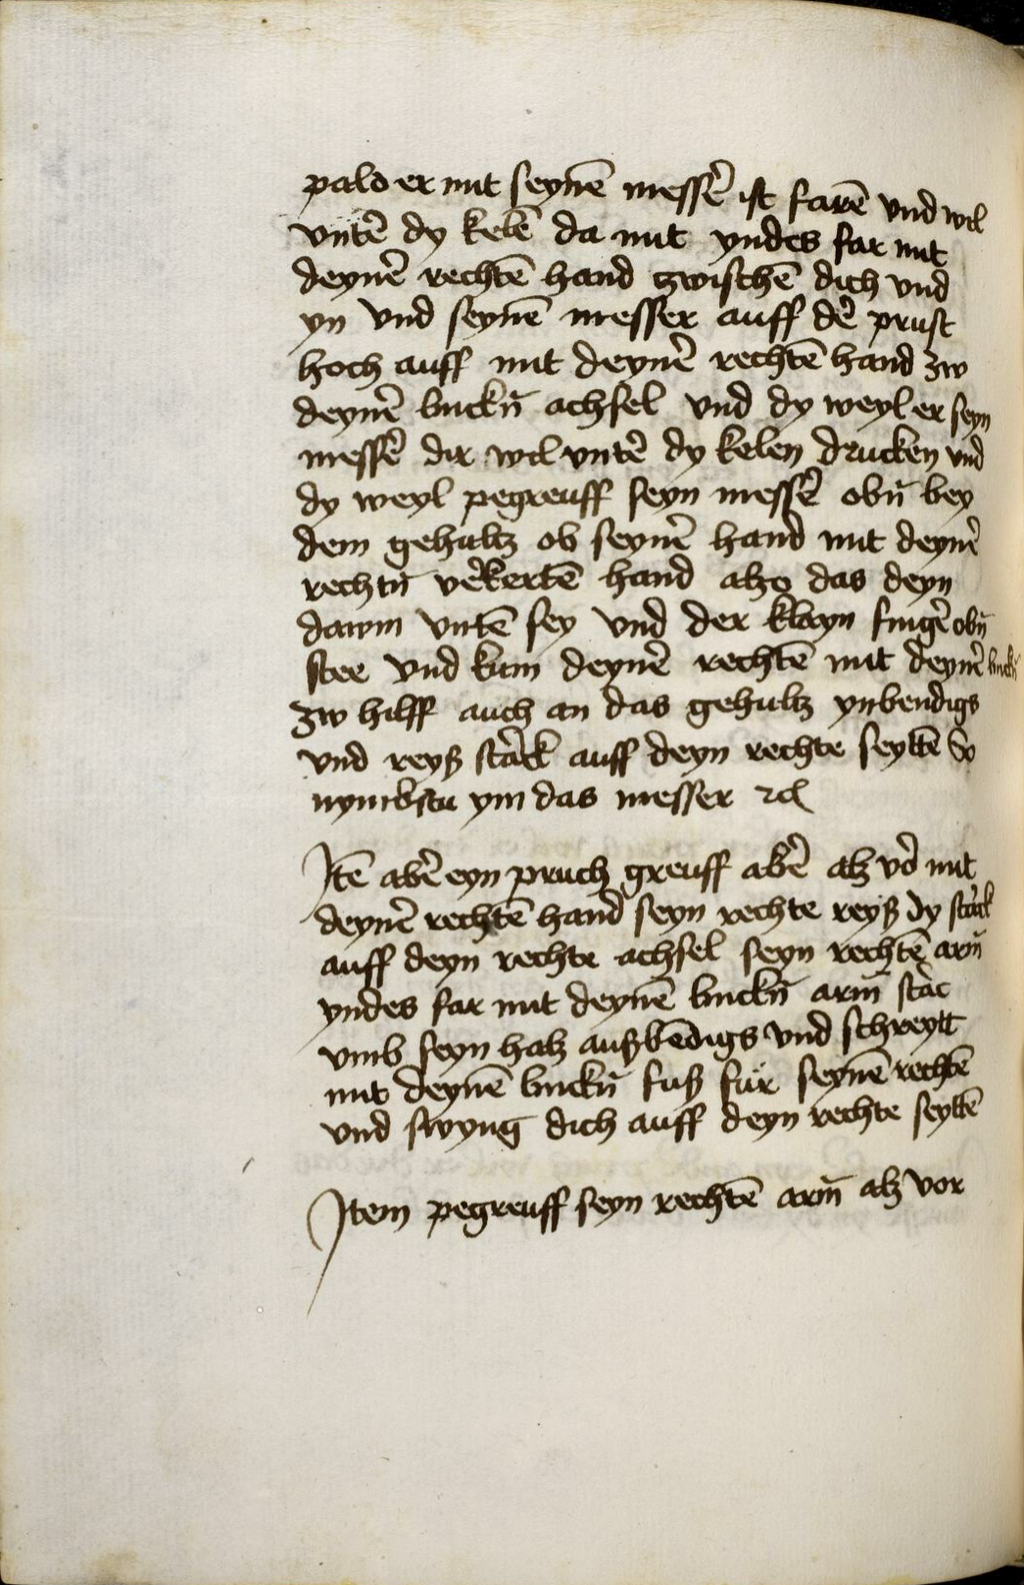 pald er mit seynē messē ist farē vnd wil
vntē dy kelē da mit yndes far mit
deynē rechtē hand zwischē dich vnd
yn vnd seynē messer auff dē prust
hoch auff mit deynē rechtē hand zw
deynē linckn̄ achsel vnd dy weyl er seyn
messē dir wil vntē dy kelen drucken vnd
dy weyl pegreuff seyn messē obn̄ bey
dem gehultz ob seynē hand mit deynē
rechtn̄ vēkertē hand alzo das deyn
dawm vntē sey vnd der klayn fingē obn̄
stee vnd kum deynē rechtē mit deynē linckn̄
zw hilff auch an das gehultz ynbendigs
vnd reyß starck auff deyn rechte seyttē So
nymbstu ym das messer ⁊c̄
Itē abē eyn pruch greuff abē alz vō mit
deynē rechtē hand seyn rechte reyß dy starck
auff deyn rechte achsel seyn rechtē arm̄
yndes far mit deynē linckn̄ arm̄ starc
vmb seyn halz außbēdigs vnd schreytt
mit deynē linckn̄ fuß für seynē rechtē
vnd swyng dich auff deyn rechte seyttē
Item pegreuff seyn rechtē arm̄ alz vor